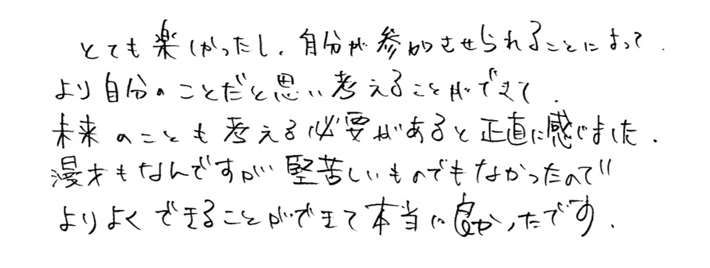 とても楽しかったし、自分が参加させられることによって、
より自分のことだと思い考えることができて、
未来のことも考える必要があると正直に感じました。
漫才もなんですが、堅苦しいものでもなかったので
よりよくできることができて本当に良かったです。